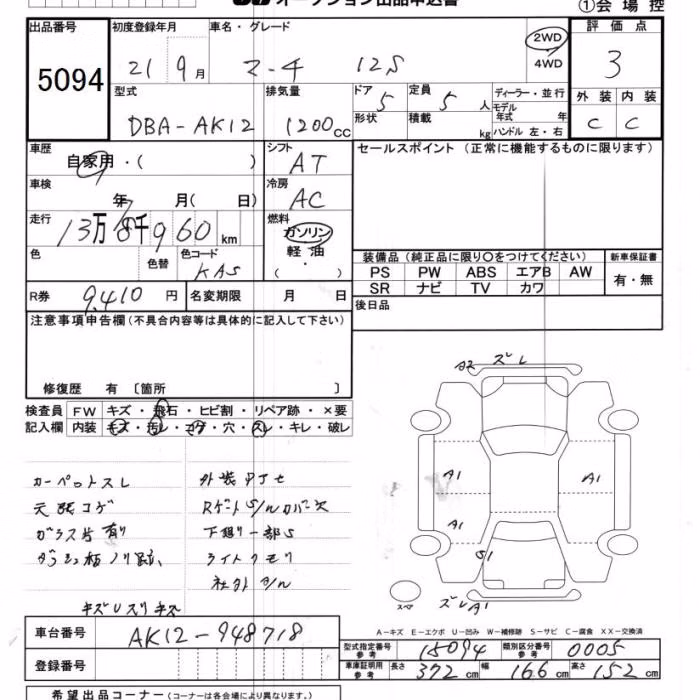 オークション出品申込書
①会場控
出品番号 初度登録年月 車名・グレード 2WD 4WD 評価点
5094 21 9月 マーチ 12S 3
型式 排気量 ドア 5 定員 5人 ディーラー・並行 外装 内装
DBA-AK12 1200cc 形状 積載 kg モデル年式 年 ハンドル 左・右 C C
車歴 自家用・( ) シフト AT セールスポイント (正常に機能するものに限ります)
車検 年 月( 日) 冷房 AC
走行 13万8千960km 燃料 ガソリン
色 色替 色コード KAS 軽油 ・( )
装備品 (純正品に限り○をつけてください) 新車保証書
PS PW ABS エアB AW 有・無
SR ナビ TV カワ
R券 9,410円 名変期限 月 日 後日品
注意事項申告欄(不具合内容等は具体的に記入して下さい)
修復歴 有 〔箇所 〕
検査員 FW キズ・飛石・ヒビ割・リペア跡・×要
記入欄 内装 キズ・汚レ・コゲ・穴・スレ・キレ・破レ
A2 ズレ
カーペットスレ
天張コゲ
ガラス片有り
下廻り一部S
ライトクモリ
A1 A1
A1
S1
スペア ズレA1
車台番号 AK12-948718
A-キズ E-エクボ U-凹み W-補修跡 S-サビ C-腐食 XX-交換済
登録番号
型式指定番号 参考 15094 類別区分番号 参考 0005
車庫証明用 参考 長さ 372cm 幅 166cm 高さ 152cm
希望出品コーナー(コーナーは各会場により異なります。)